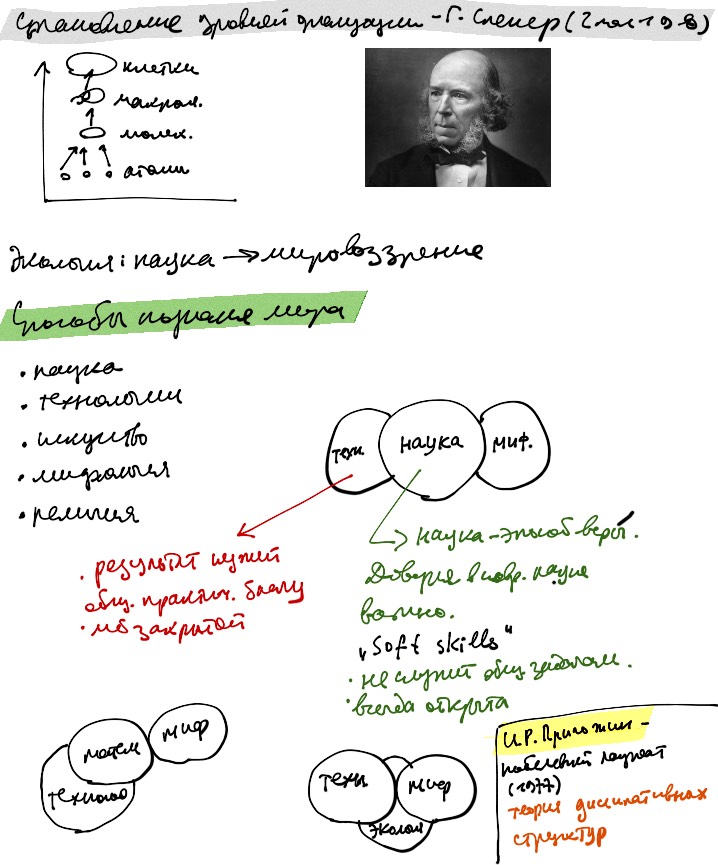 Становление уровней эволюции - Г. Спенсер (2 пол 19 в)
клетки
макром.
молек.
атомы
Экология: наука → мировоззрение
Способы познания мира
• наука
• технологии
• искуство
• мифология
• религия
техн.
наука
миф.
• результат служит
общ. практич. благу
• мб закрытой
наука - способ веры.
Доверие в совр. науке
важно.
"Soft skills"
• не служит общ. задачам.
• всегда открыта
матем
миф
техноло
техн
миф
эколог
И.Р. Пригожин -
нобелевский лауреат
(1977)
теория диссипативных
структур